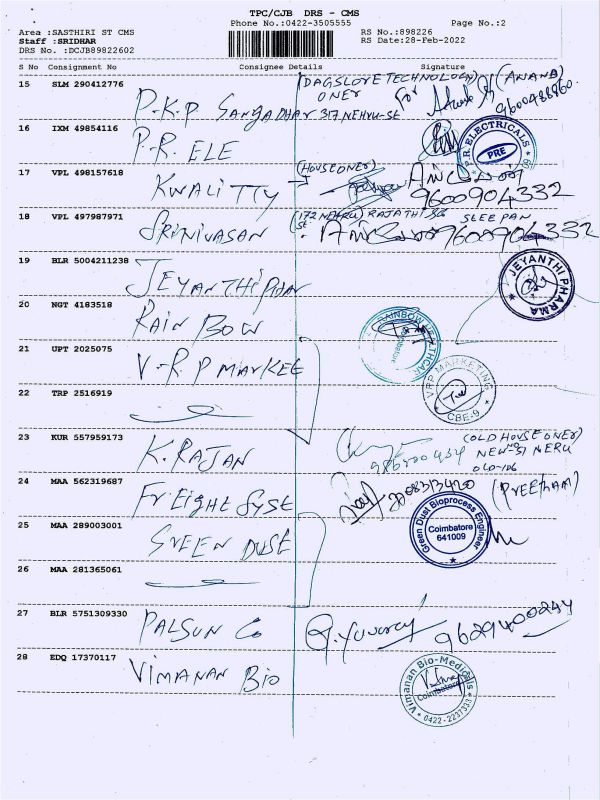 TPC/CJB DRS - CMS
Phone No.:0422-3505555
Page No.:2
Area :SASTHIRI ST CMS
Staff :SRIDHAR
DRS No. :DCJB89822602
RS No.:898226
RS Date:28-Feb-2022
S No Consignment No Consignee Details Signature
15 SLM 290412776 P.K.P SANGADHAR 317 NEHRU-St
(DAGSLORE TECHNOLOGY) ONER For (ANAND)
16 IXM 49854116 P.R. ELE
P.R. ELECTRICALS PRE
17 VPL 498157618 KWALITTY (HOUSE ONER)
9600904332
18 VPL 497987971 SRINIVASAN (172 NEHRU St. RAJATHI SLEEPAN
9600904332
19 BLR 5004211238 JEYANTHI PHAR
JEYANTHI PHARMA
20 NGT 4183518 RAIN BOW
RAINBOW HEALTHCARE Coimbatore
21 UPT 2025075 V-R P MARKEt
VRP MARKETING CBE-9
22 TRP 2516919
23 KUR 557959173 K.RAJAN
(OLD HOUSE ONER) NEW NO-51 NERU OLD-106
24 MAA 562319687 FrEight SYSt
(PREETHAM)
25 MAA 289003001 GREEN DUSt
Green Dust Bioprocess Engineer Coimbatore 641009
26 MAA 281365061
27 BLR 5751309330 PALSUN Co G.Yuvaraj 9629400244
28 EDQ 17370117 VIMANAN BIO
Vimanan Bio-Medicals Coimbatore 0422-2237333